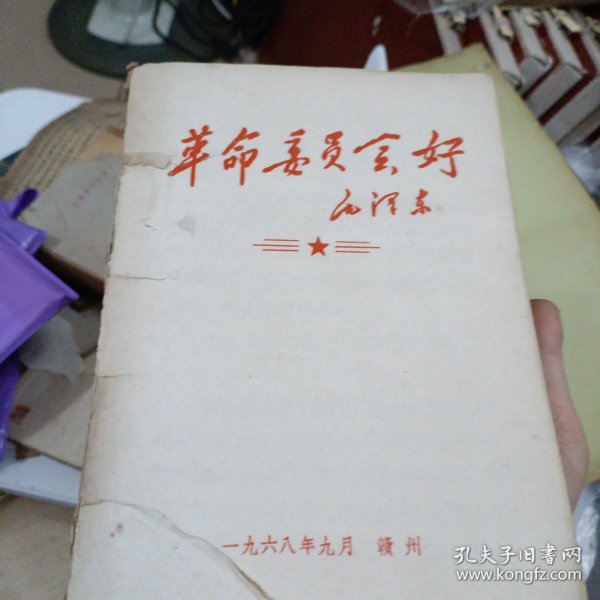 革命委员会好
毛泽东
一九六八年九月 赣州
孔夫子旧书网
www.kongfz.com